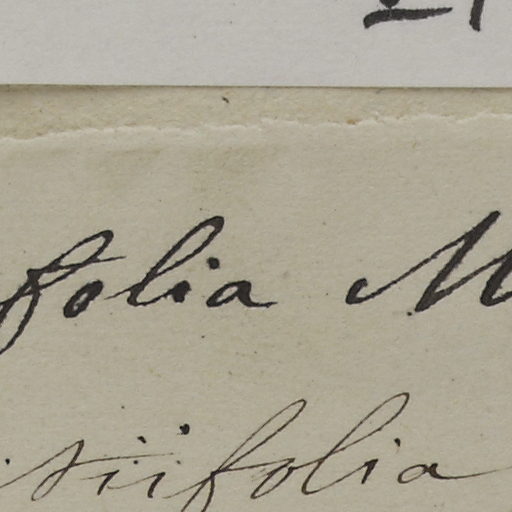 folia M
stiifolia